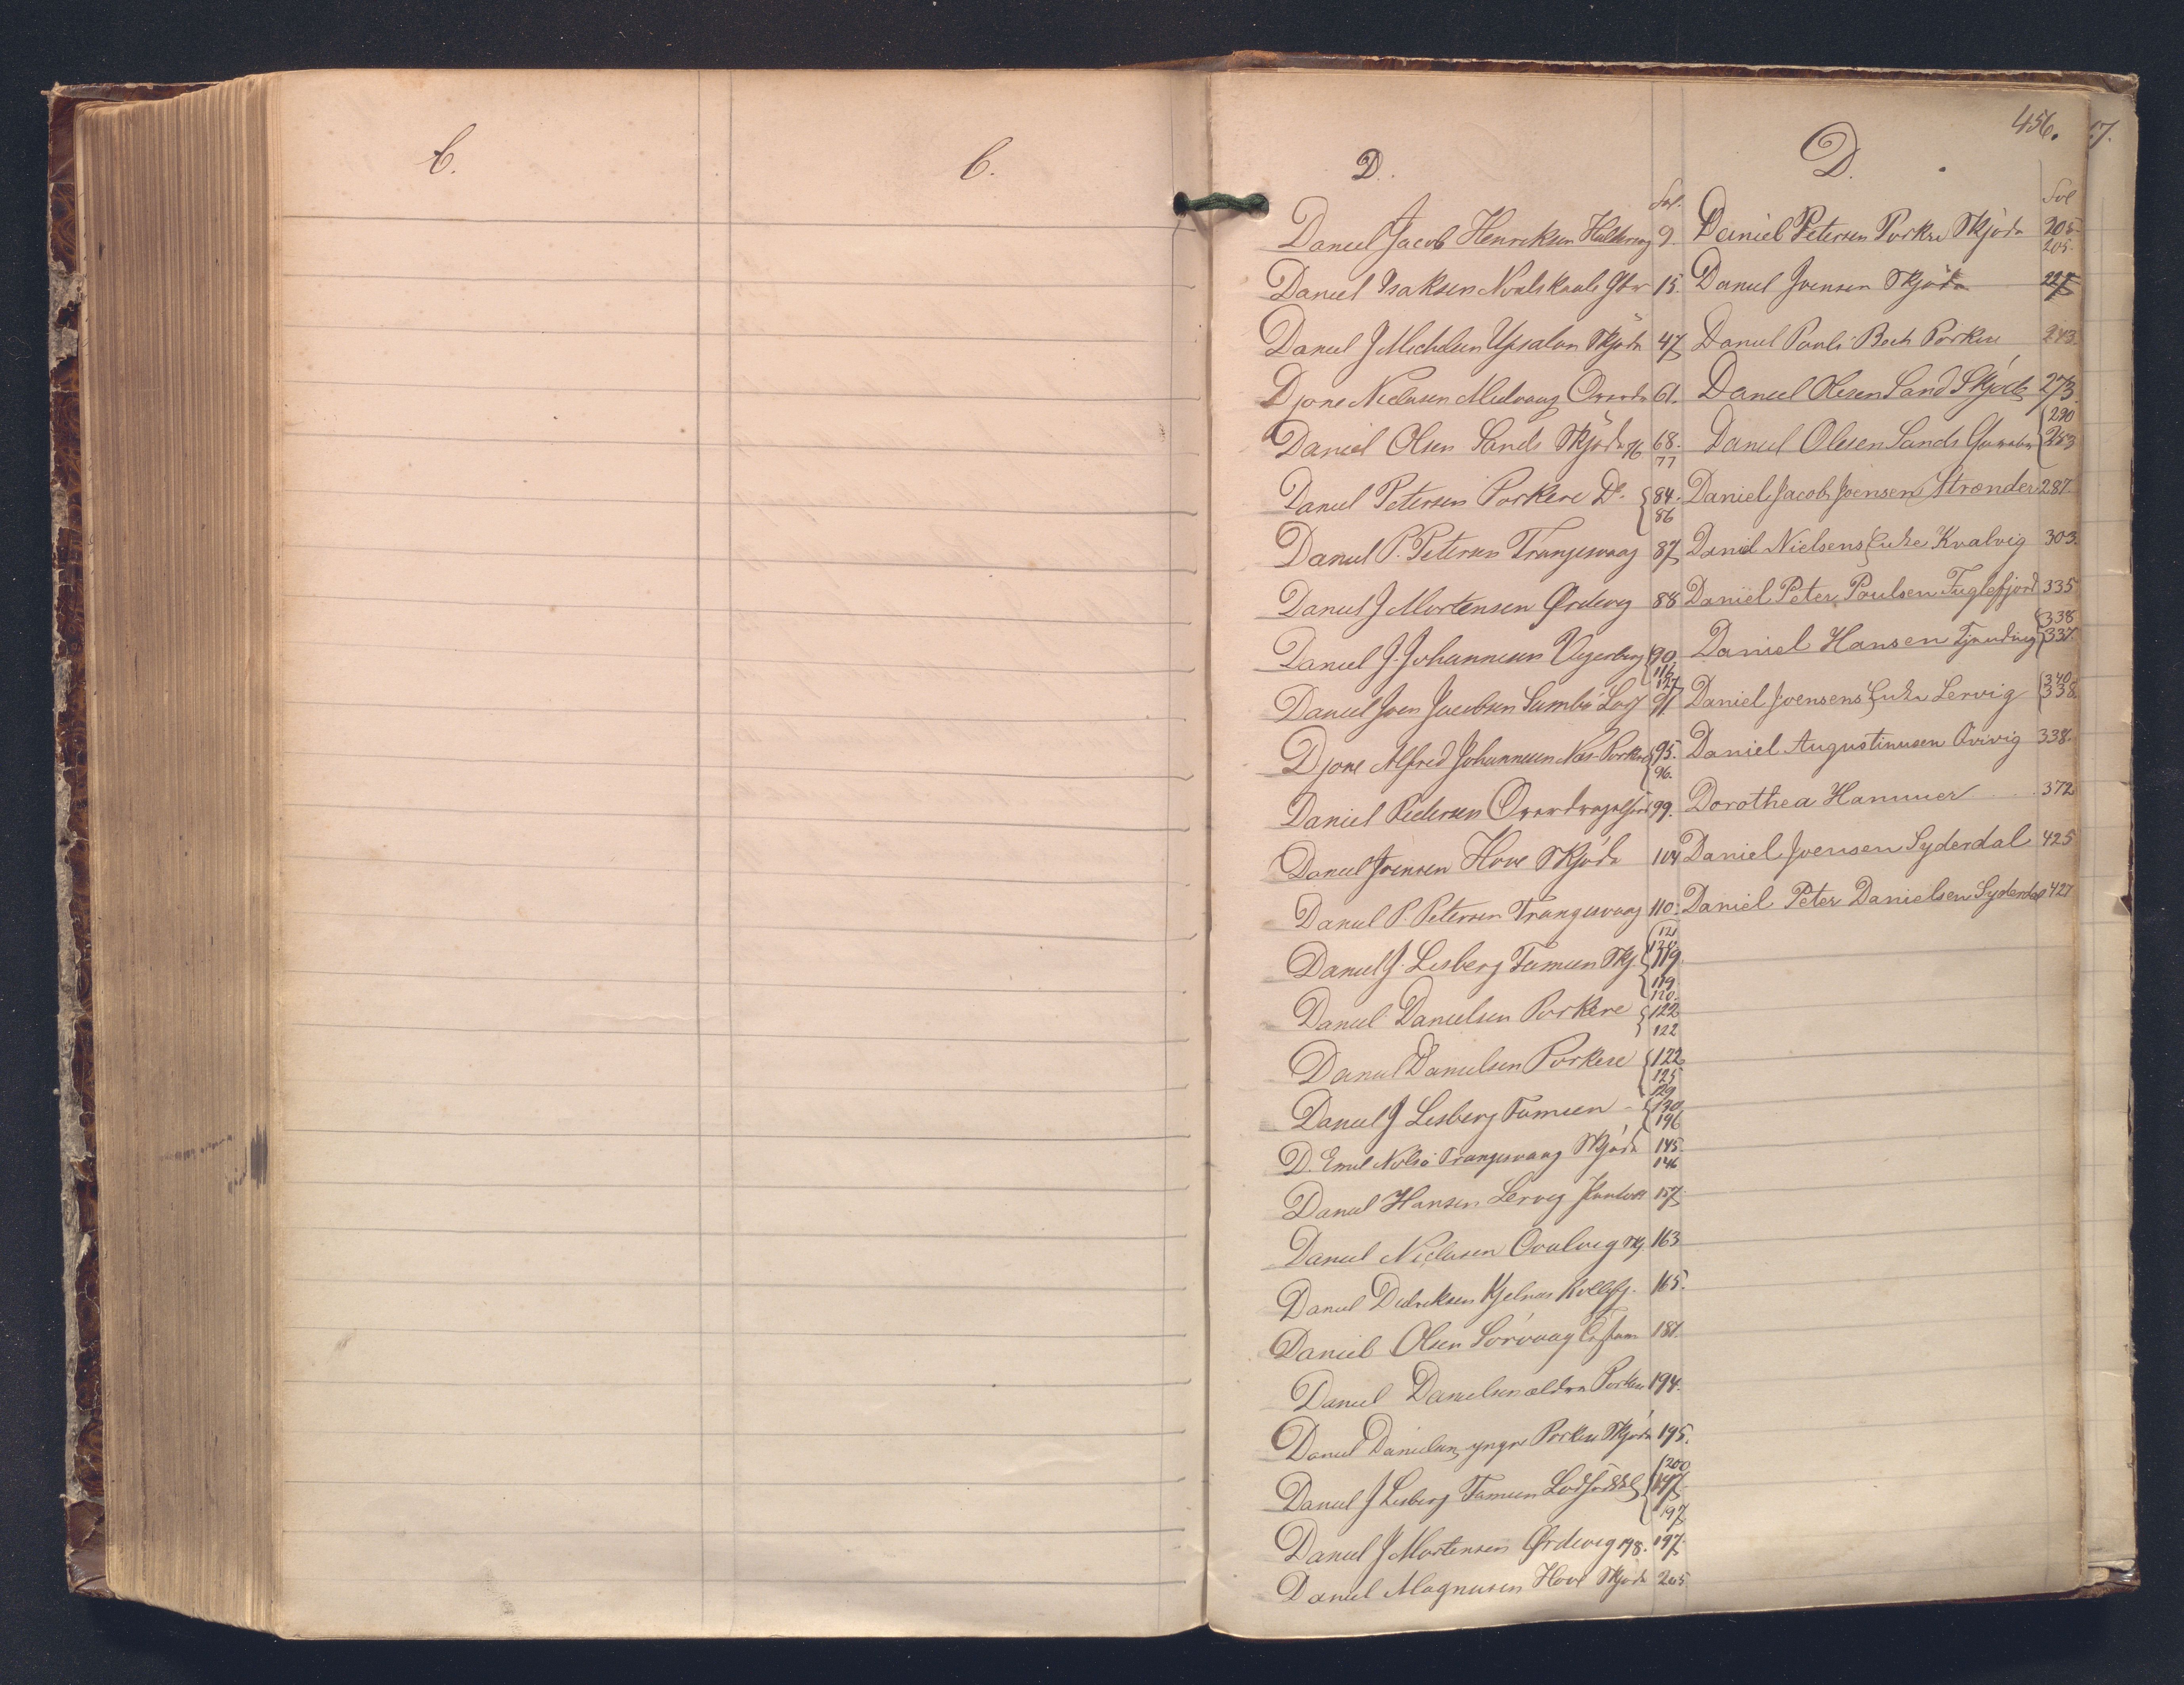 C.
C.
456.
D.
Sol.
Daniel Jacob Henriksen 9.
Daniel Isaksen 15.
Daniel J Michelsen Skjøde 47
Djone Nielsen Midvaag 61.
Daniel Olsen Sands Skjøde 76 68.
77
Daniel Petersen Porkere Do. 84.
86
Daniel P. Petersen Trangisvaag 87
Daniel J Mortensen Ørdevig 88
Daniel J. Johannesen 90
116
127
Daniel Joen Jacobsen Sumbø 91
Djone Alfred Johannesen Næs Porkere 95.
96.
Daniel Pedersen 99.
Daniel Joensen Hove Skjøde 104
Daniel P. Petersen Trangisvaag 110.
121
Daniel J. Lisberg Famien Skj. 119.
119
120.
Daniel Danielsen Porkere 122
122
Daniel Danielsen Porkere 122
125
129
Daniel J Lisberg Famien 130
196
D. Emil Nolsø Trangisvaag Skjøde 145.
146
Daniel Hansen Lervig 157
Daniel Nielsen Qvalvig Skj. 163
Daniel Didriksen Kjelnæs Kollefj. 165.
Daniel Olsen Sørvaag 181.
Daniel Danielsen ældre Porkere 194.
Daniel Danielsen yngre Porkere Skjøde 195.
200
Daniel J Lisberg Famien 197
197
Daniel J Mortensen Ørdevig 198. 197.
Daniel Magnusen Hove Skjøde 205
D.
Sol
Daniel Petersen Porkere Skjøde 205
205.
Daniel Joensen Skjøde 227
Daniel Pauli Bech Porkere 243
Daniel Olesen Sand Skjøde 273
290
Daniel Olesen Sands 253
Daniel Jacob Joensen Strænder 287.
Daniel Nielsens Enke Kvalvig 303.
Daniel Peter Poulsen Fuglefjord 335
338
Daniel Hansen 337.
340.
Daniel Joensens Enke Lervig 338.
Daniel Augustinusen 338.
Dorothea Hammer 372
Daniel Joensen Syderdal 425
Daniel Peter Danielsen Syderdal 427